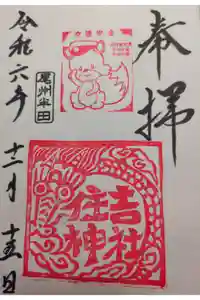 奉拝
尾州半田
住吉
神社
令和六年
十二月
十五日